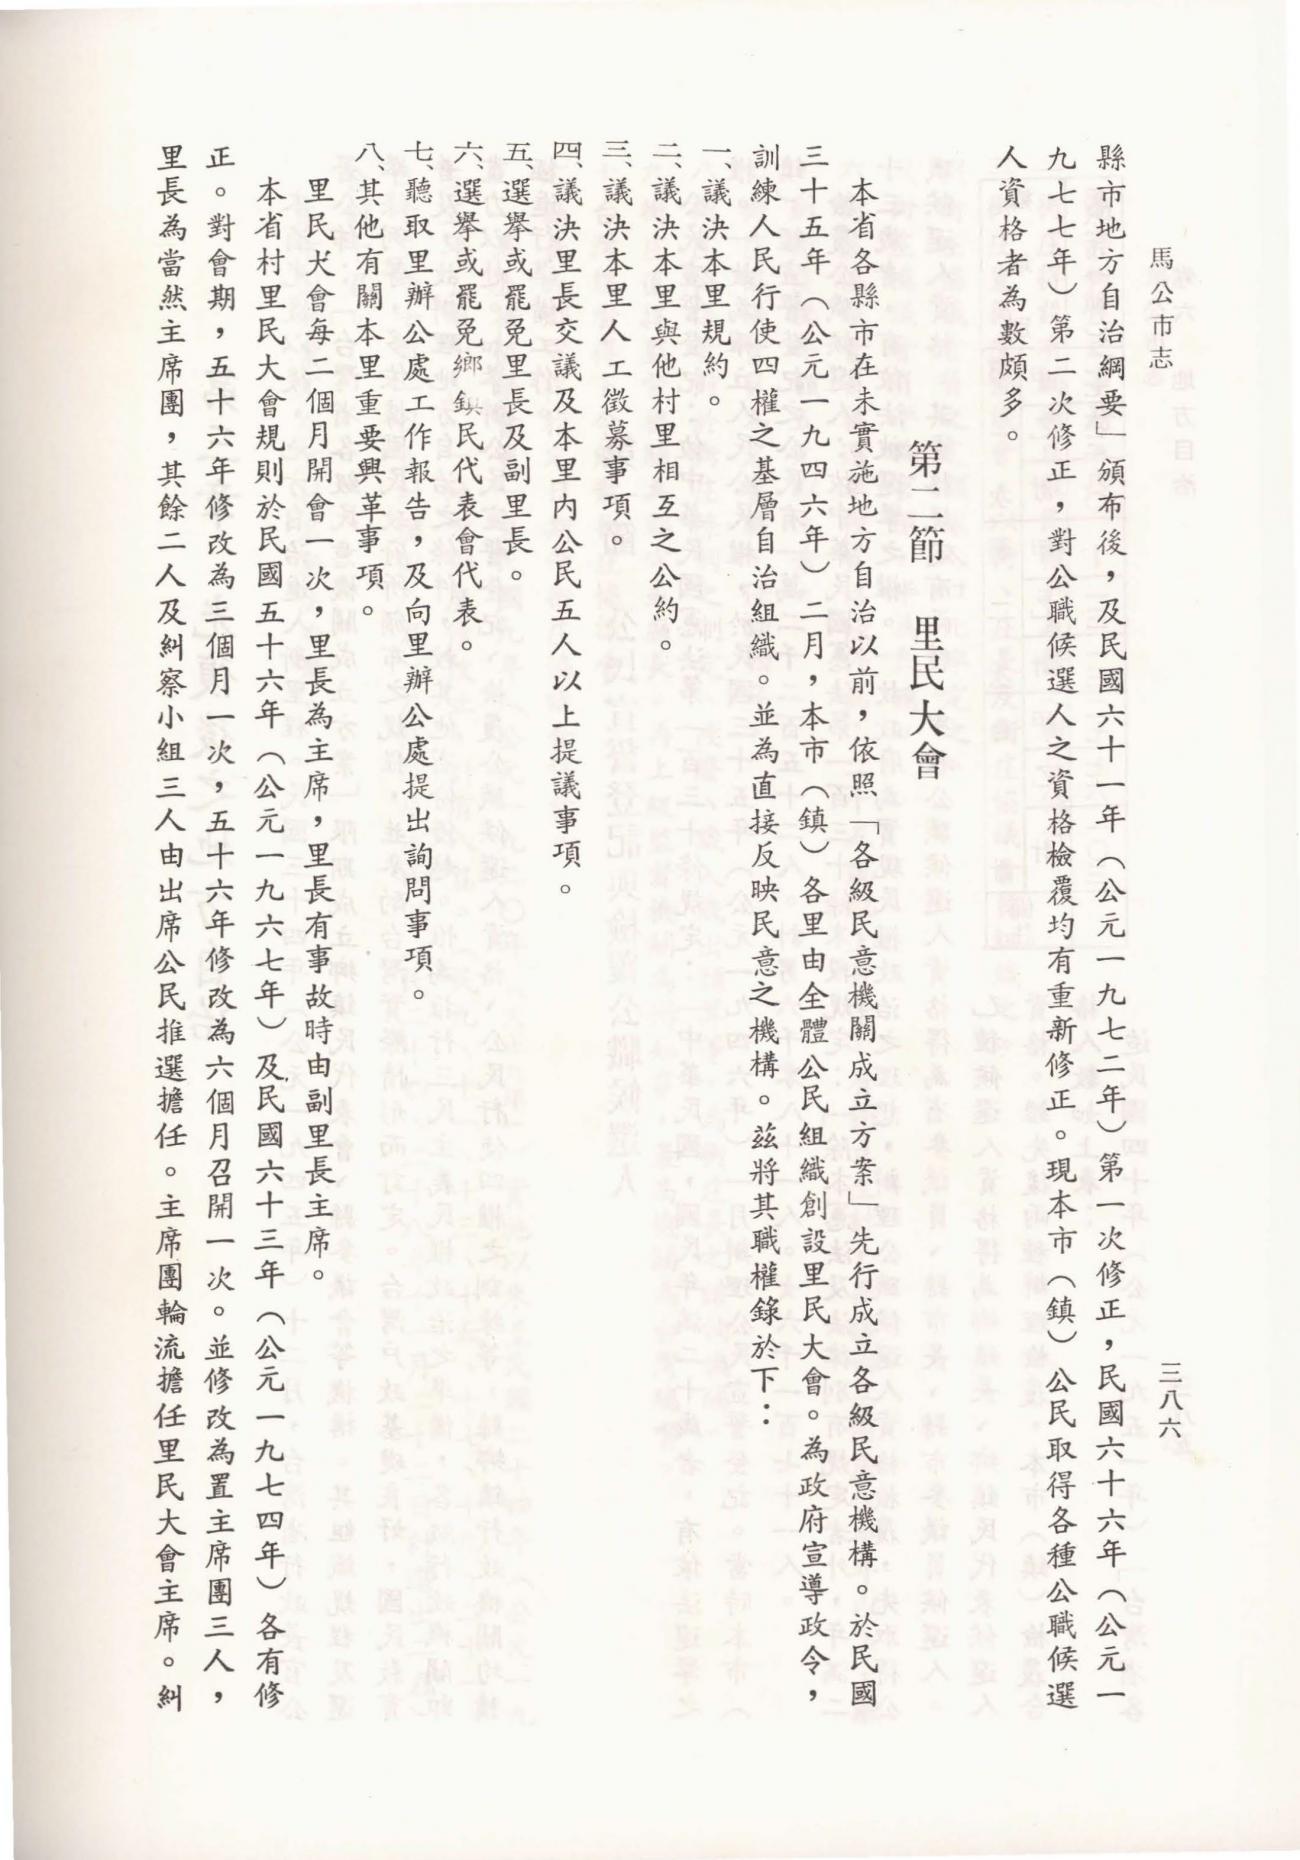 馬公市志
三八六
縣市地方自治綱要」頒布後，及民國六十一年（公元一九七二年）第一次修正，民國六十六年（公元一
九七七年）第二次修正，對公職候選人之資格檢覆均有重新修正。現本市（鎮）公民取得各種公職候選
人資格者為數頗多。
第二節　里民大會
本省各縣市在未實施地方自治以前，依照「各級民意機關成立方案」先行成立各級民意機構。於民國
三十五年（公元一九四六年）二月，本市（鎮）各里由全體公民組織創設里民大會。為政府宣導政令，
訓練人民行使四權之基層自治組織。並為直接反映民意之機構。茲將其職權錄於下：
一、議決本里規約。
二、議決本里與他村里相互之公約。
三、議決本里人工徵募事項。
四、議決里長交議及本里內公民五人以上提議事項。
五、選舉或罷免里長及副里長。
六、選舉或罷免鄉鎮民代表會代表。
七、聽取里辦公處工作報告，及向里辦公處提出詢問事項。
八、其他有關本里重要興革事項。
里民犬會每二個月開會一次，里長為主席，里長有事故時由副里長主席。
本省村里民大會規則於民國五十六年（公元一九六七年）及民國六十三年（公元一九七四年）各有修
正。對會期，五十六年修改為三個月一次，五十六年修改為六個月召開一次。並修改為置主席團三人，
里長為當然主席團，其餘二人及糾察小組三人由出席公民推選擔任。主席團輪流擔任里民大會主席。糾